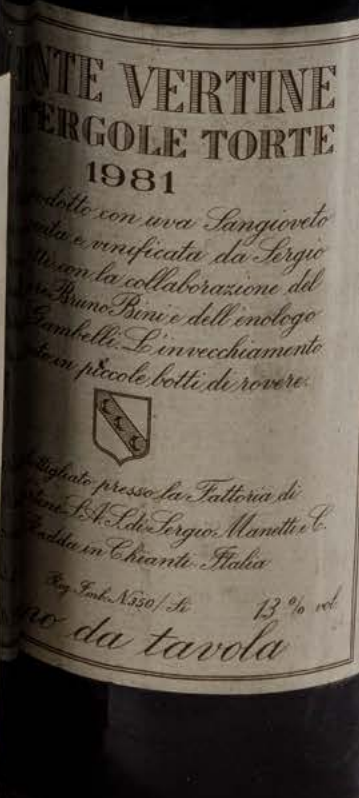 NTE VERTINE
ERGOLE TORTE
1981
odotto con uva Sangioveto
e vinificata da Sergio
con la collaborazione del
Bruno Bini e dell'enologo
Gambelli. L'invecchiamento
in piccole botti di rovere.
presso la Fattoria di
S.A.S. di Sergio Manetti e C.
Radda in Chianti - Italia
Reg. Imb. N. 350/Si 13% vol.
no da tavola